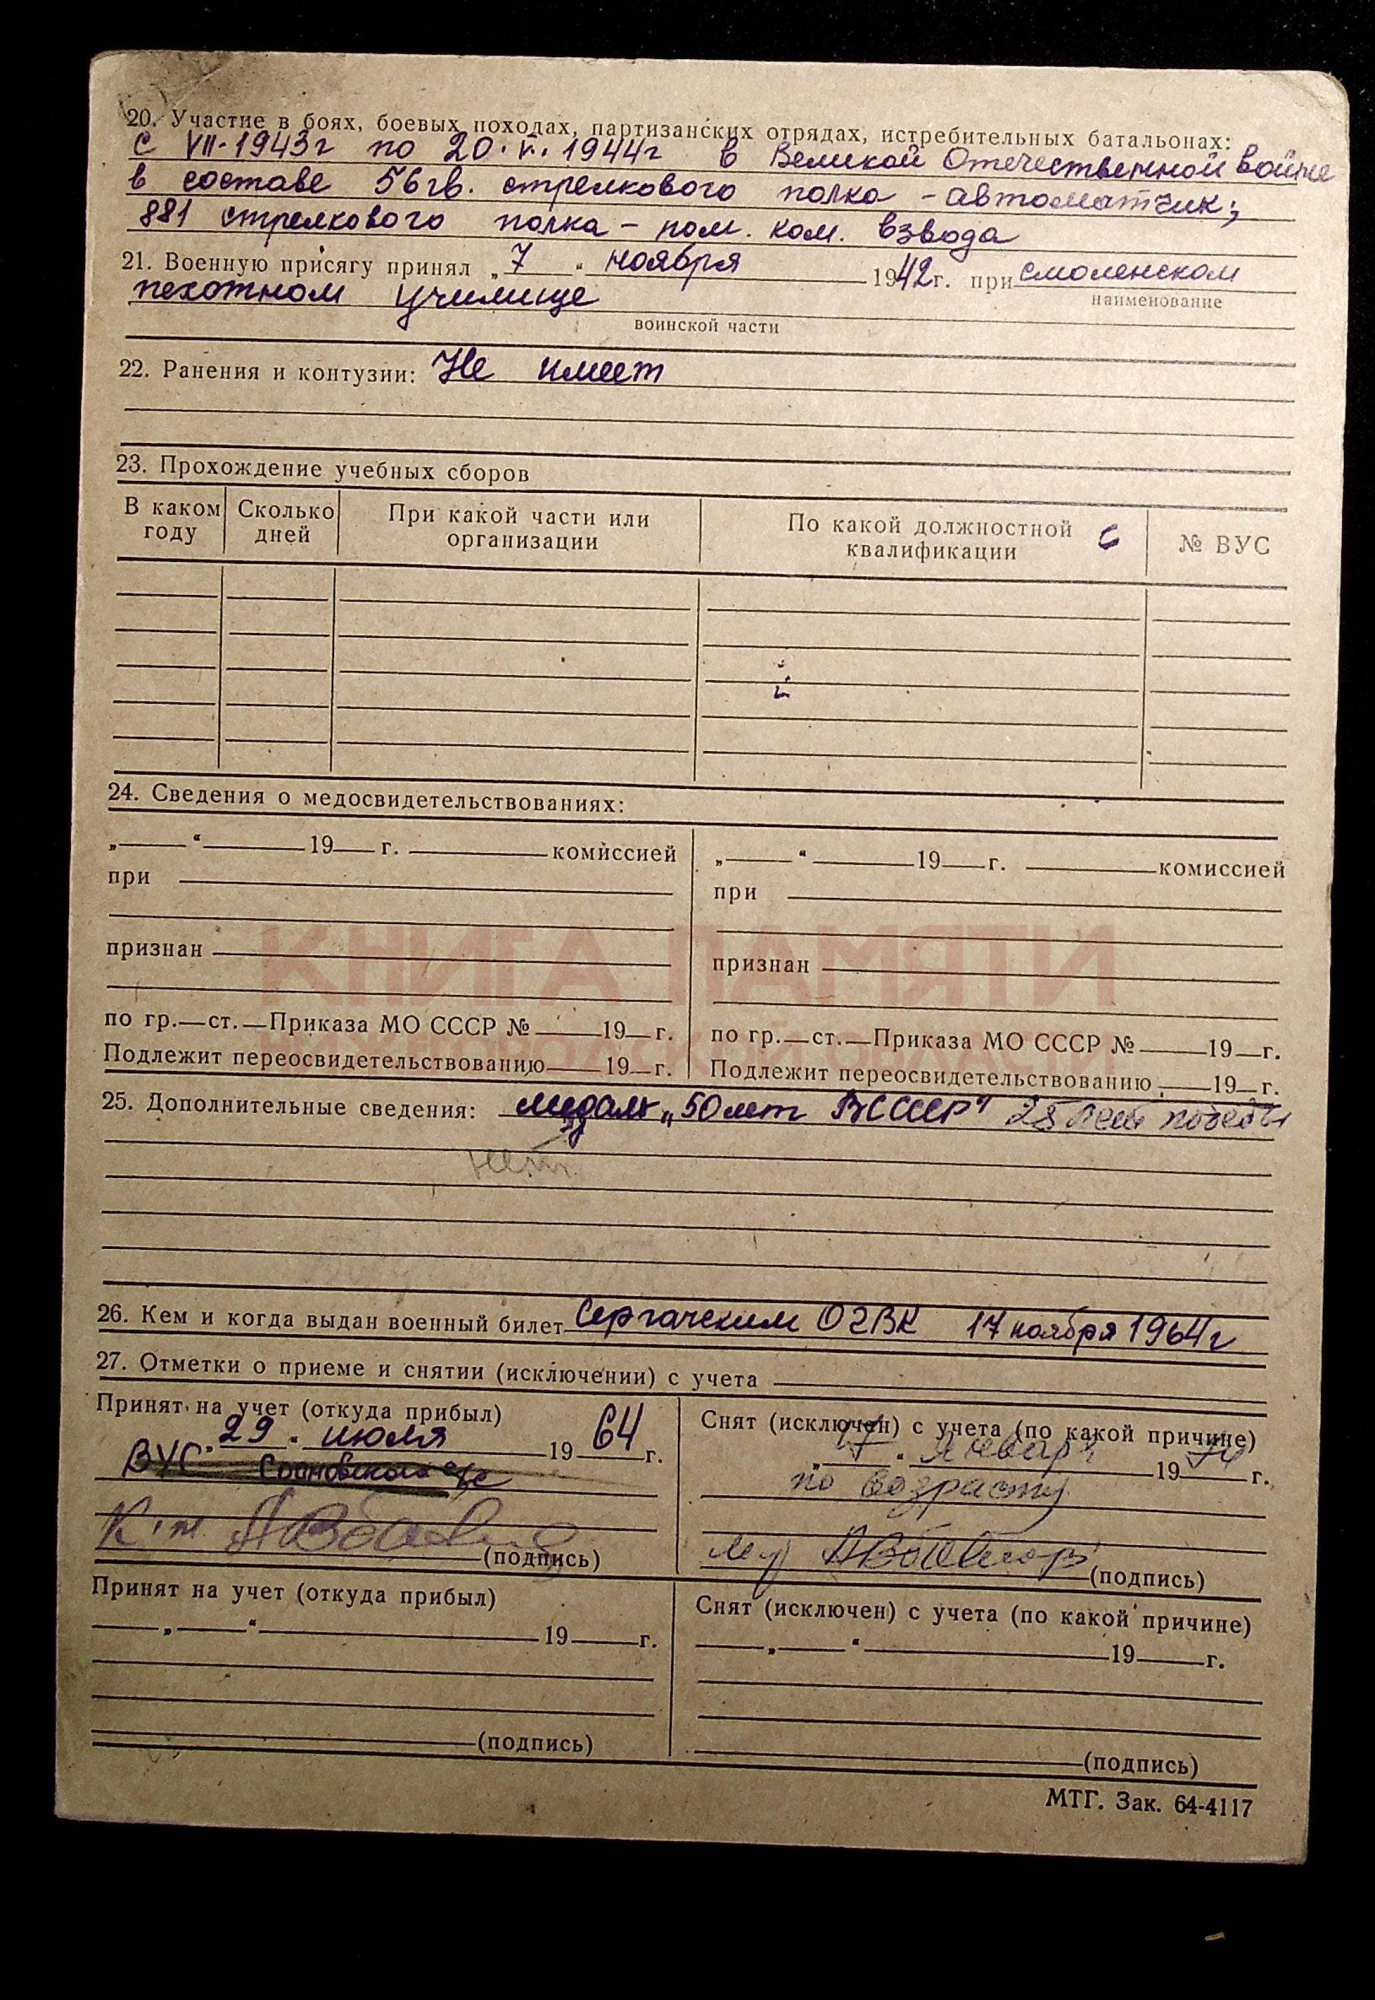 20. Участие в боях, боевых походах, партизанских отрядах, истребительных батальонах:
с VII-1943г по 20.V.1944г в Великой Отечественной войне
в составе 56 гв. стрелкового полка - автоматчик;
881 стрелкового полка - пом. ком. взвода
21. Военную присягу принял „ 7 “ ноября 1942г. при смоленском
наименование
пехотном училище
воинской части
22. Ранения и контузии: Не имеет
23. Прохождение учебных сборов
В каком году Сколько дней При какой части или организации По какой должностной квалификации № ВУС
24. Сведения о медосвидетельствованиях:
„ “ 19 г. комиссией „ “ 19 г. комиссией
при при
признан признан
по гр. ст. Приказа МО СССР № 19 г. по гр. ст. Приказа МО СССР № 19 г.
Подлежит переосвидетельствованию 19 г. Подлежит переосвидетельствованию 19 г.
КНИГА ПАМЯТИ
НИЖЕГОРОДСКОЙ ОБЛАСТИ
25. Дополнительные сведения: медаль „50 лет ВС СССР" 25 лет победы
нет.
26. Кем и когда выдан военный билет Сергачским ОГВК 17 ноября 1964г
27. Отметки о приеме и снятии (исключении) с учета
Принят на учет (откуда прибыл) Снят (исключен) с учета (по какой причине)
„ 29 “ июля 19 64 г. „ 17 “ января 19 74 г.
ВУС Сосновского с/с по возрасту
(подпись) (подпись)
Принят на учет (откуда прибыл) Снят (исключен) с учета (по какой причине)
„ “ 19 г. „ “ 19 г.
(подпись) (подпись)
МТГ. Зак. 64-4117